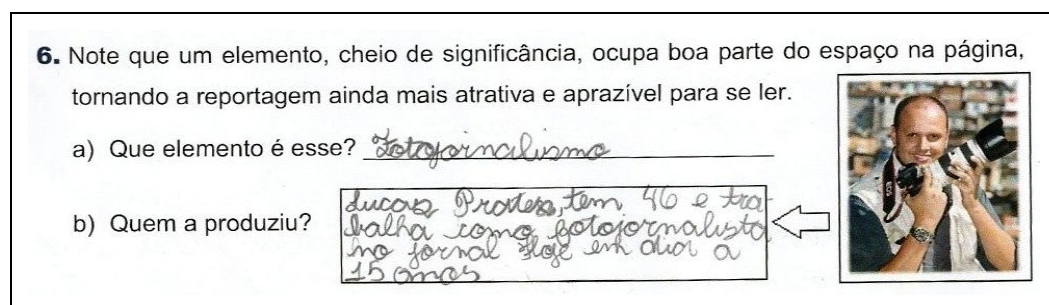 6. Note que um elemento, cheio de significância, ocupa boa parte do espaço na página,
tornando a reportagem ainda mais atrativa e aprazível para se ler.
a) Que elemento é esse? Fotojornalismo
b) Quem a produziu?
Lucas Prates, tem 46 e tra
balha como fotojornalista
no jornal Hoje em dia a
15 anos
EOS